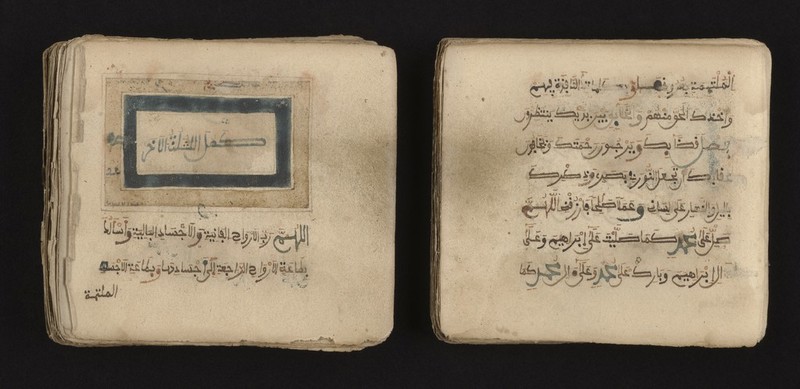 كمل الثلث الاخر
اللهم رب الارواح الفانية والاجساد البالية واسالك
بطاعة الارواح الراجعة الى اجسادها وبطاعة الاجساد
الملتئمة
الملتئمة بعروقها وبكلماتك النافذة فيهم
واخذك الحق منهم والخلايق بين يديك ينتظرون
فصل قضايك ويرجون رحمتك ويخافون
عقابك ان تجعل النور في بصري وذكرك
باليل والنهار على لساني وعملا صالحا فارزقني اللهم
صل على محمد كما صليت على ابراهيم وعلى
ال ابراهيم وبارك على محمد وعلى ال محمد كما